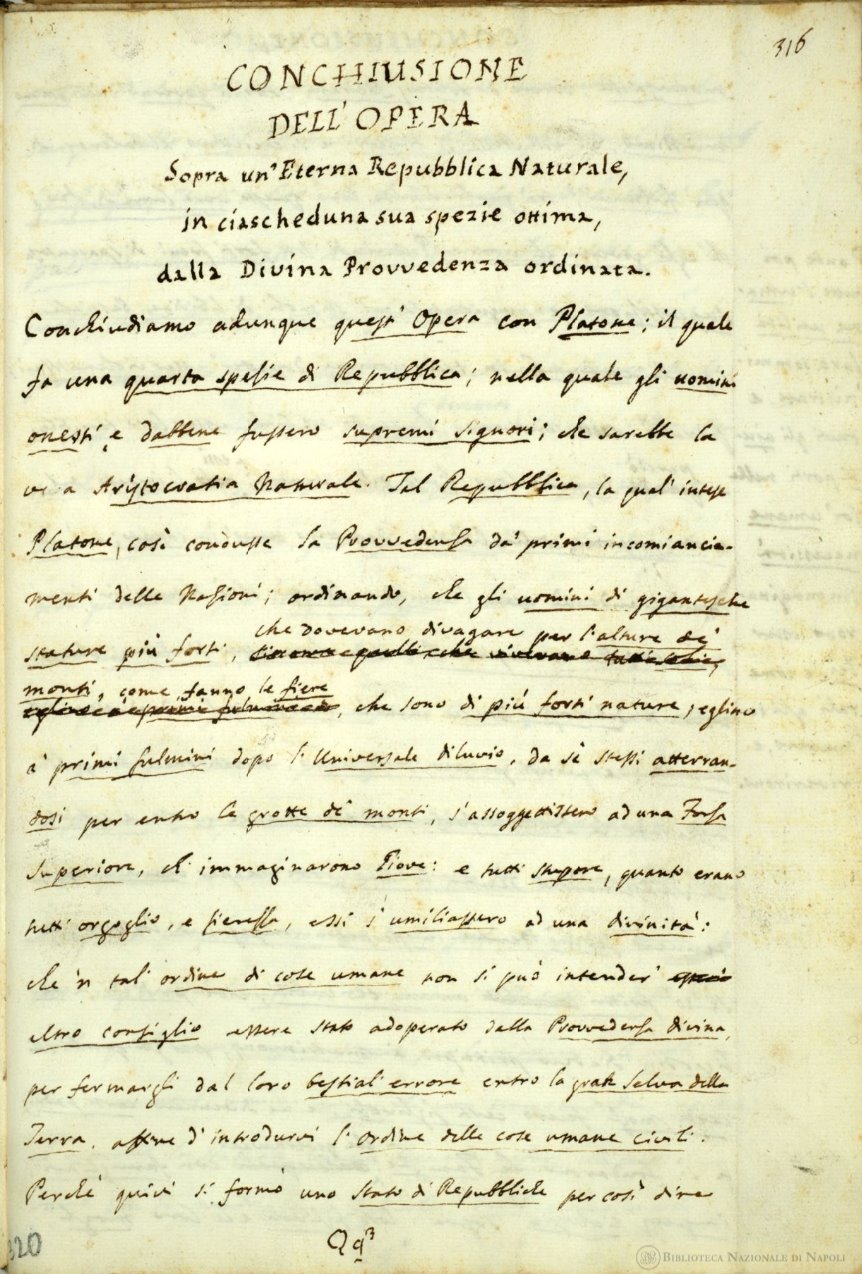 316
CONCHIUSIONE
DELL' OPERA
Sopra un' Eterna Repubblica Naturale,
in ciascheduna sua spezie ottima,
dalla Divina Provvedenza ordinata.
Conchiudiamo adunque quest' Opera con Platone; il quale
fa una quarta spezie di Repubblica; nella quale gli uomini
onesti, e dabbene fussero supremi Signori; che sarebbe la
vera Aristocratia Naturale. Tal Repubblica, la qual' intese
Platone, così condusse la Provvedenza da' primi incomincia-
menti delle Nazioni; ordinando, che gli uomini di gigantesche
stature più forti,
che dovevano divagare per l'alture de'
monti, come fanno le fiere
, che sono di più forti nature, eglino
a' primi fulmini dopo l'Universale diluvio, da sè stessi atterran-
dosi per entro le grotte de' monti, s'assoggettissero ad una Forza
Superiore, ch' immaginarono Giove: e tutti stupore, quanto erano
tutti orgoglio, e fierezza, essi s' umiliassero ad una divinità:
che 'n tal' ordine di cose umane non si può intender'
altro consiglio essere stato adoperato dalla Provvedenza divina,
per fermargli dal loro bestial' errore entro la gran Selva della
Terra, affine d' introdurvi l' ordine delle cose umane civili.
Perchè quivi si formò uno Stato di Repubbliche per così dire
Qq3
320
BIBLIOTECA NAZIONALE DI NAPOLI